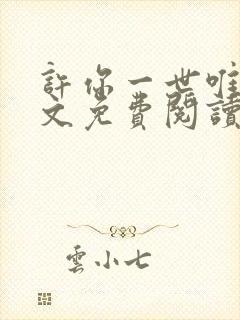 許你一世唯
文免費閱讀
雲小七